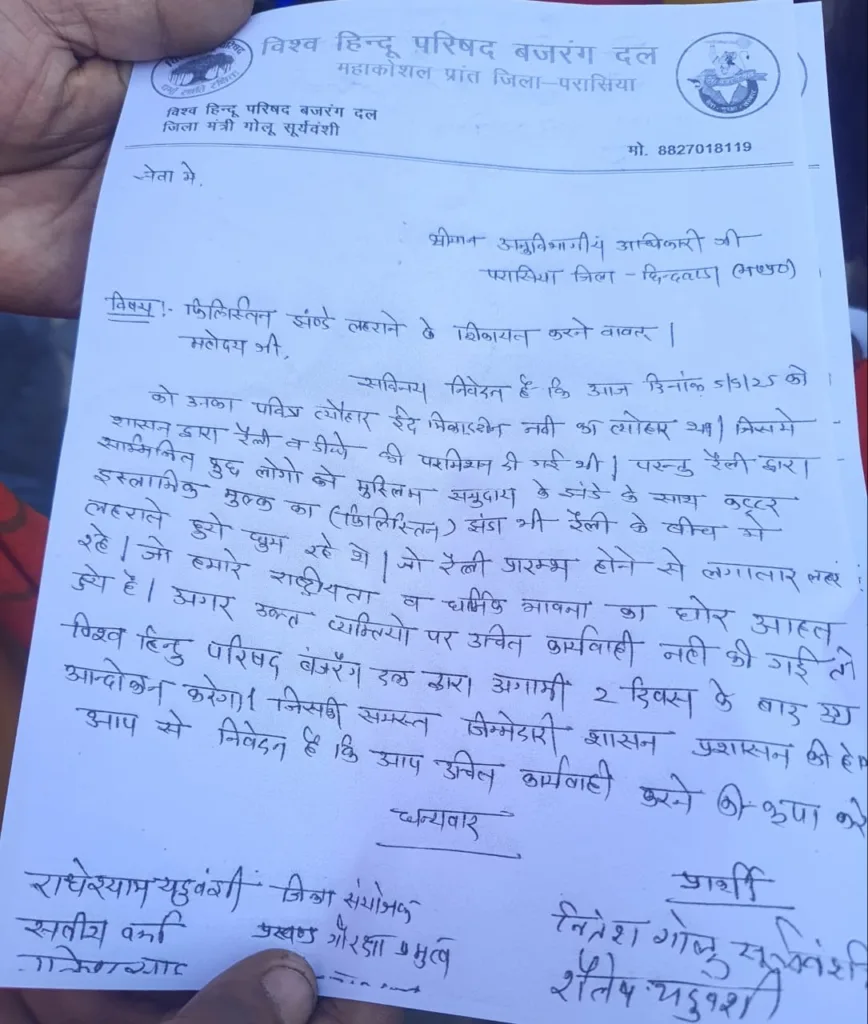 विश्व हिन्दू परिषद बजरंग दल
महाकोशल प्रांत जिला-परासिया
विश्व हिन्दू परिषद बजरंग दल
जिला मंत्री गोलू सूर्यवंशी
मो. 8827018119
सेवा मे,
श्रीमान अनुविभागीय अधिकारी जी
परासिया जिला - छिन्दवाड़ा (म०प्र०)
विषय :- फिलिस्तिन झण्डे लहराने के शिकायत करने वावत |
महोदय जी,
सविनय निवेदन है कि आज दिनांक 5/9/25 को
को उनका पवित्र त्यौहार ईद मिलादुन नवी का त्योहार था | जिसमे
शासन द्वारा रैली व डीजे की परमिशन दी गई थी | परन्तु रैली द्वारा
साम्मिलित कुछ लोगो को मुस्लिम समुदाय के झंडे के साथ कट्टर
इस्लामिक मुल्क का (फिलिस्तिन) झंडा भी रैली के बीच मे
लहराते हुये घुम रहे थे | जो रैली प्रारम्भ होने से लगातार लहरा
रहे | जो हमारे राष्ट्रीयता व धार्मिक भावना का घोर आहत
हुये है | अगर उक्त व्यक्तियो पर उचित कार्यवाही नही की गई तो
विश्व हिन्दु परिषद बंजरंग दल द्वारा अगामी 2 दिवस के बाद उग्र
आन्दोलन करेगा | जिसकी समस्त जिम्मेदारी शासन प्रशासन की होगी
आप से निवेदन है कि आप उचित कार्यवाही करने की कृपा करे
धन्यवाद
प्रार्थी
राधेश्याम यदुवंशी जिला संयोजक
नितेश गोलु सूर्यवंशी
सतीष वर्मा प्रखण्ड गौरक्षा प्रमुख
शैलेष यदुवंशी